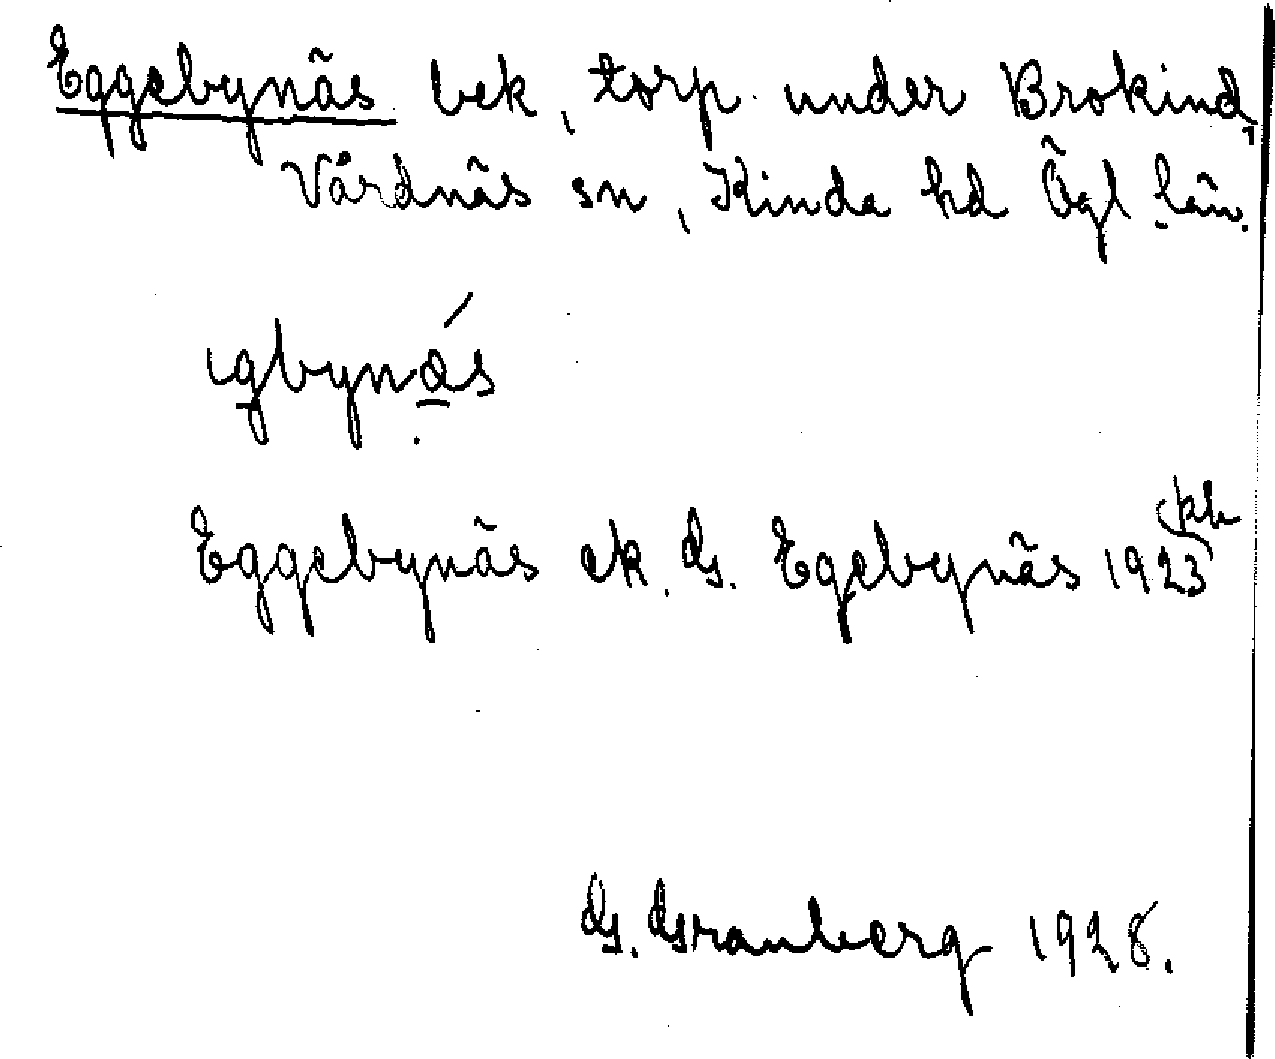 Eggebynäs bek, torp under Brokind,
Vårdnäs sn, Kinda hd Ögl län.
ıgbynás
Eggebynäs ek. G. Egebynäs 1923 kb
G. Granberg 1928.